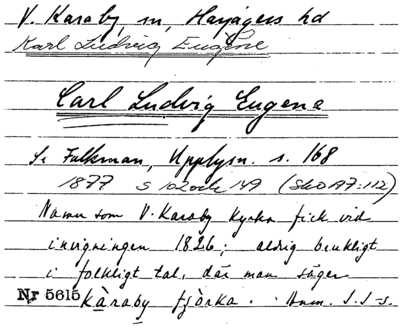 V. Karaby, sn, Harjagers hd
Karl Ludvig Eugene
Carl Ludvig Eugene
Se Falkman, Upplysn. s. 168
1877 s 102 och 149 (SkO A7:112)
Namn som V. Karaby kyrka fick vid
invigningen 1826; aldrig brukligt
i folkligt tal, där man säger
Nr 5615 kàraby tjörka. Anm. J. J-s.